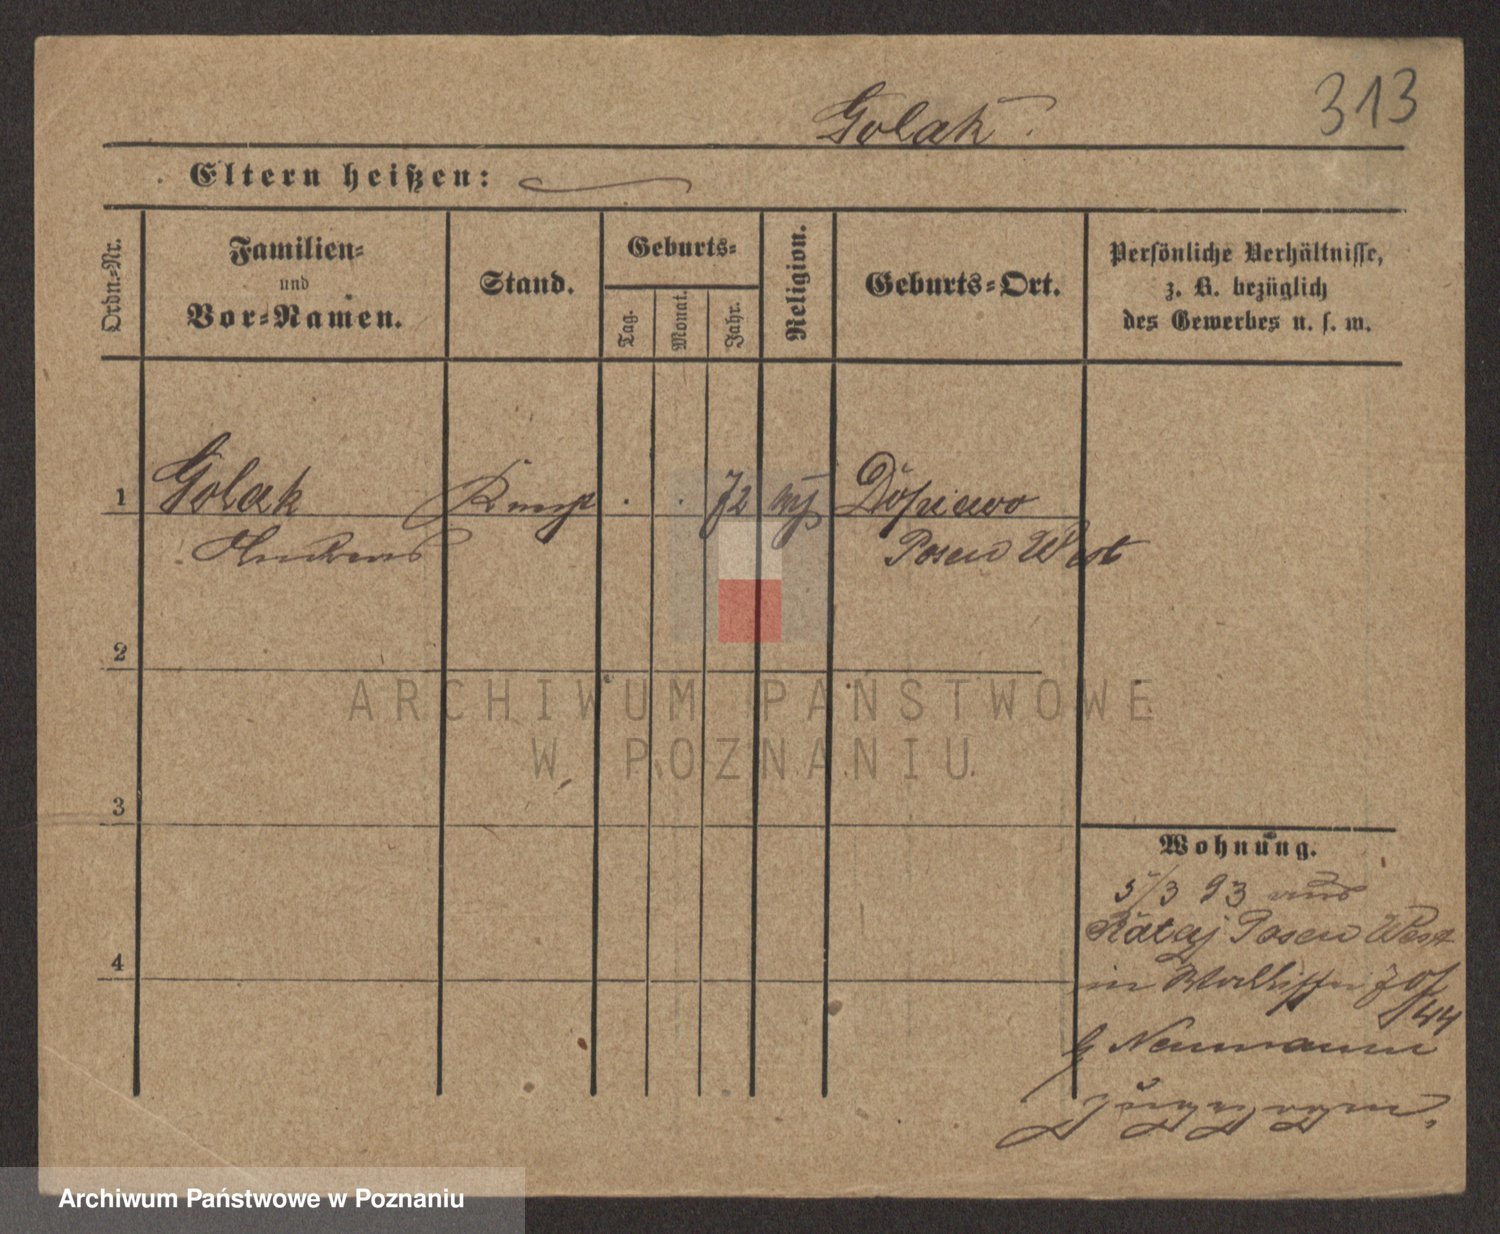 313
Golak.
Eltern heißen:
Ordn.-Nr.
Familien-
und
Vor-Namen.
Stand.
Geburts-
Tag.
Monat.
Jahr.
Religion.
Geburts-Ort.
Persönliche Verhältnisse,
z. B. bezüglich
des Gewerbes u. s. w.
1 Golak 72 Dopiewo
Andreas Posen West
2
ARCHIWUM PAŃSTWOWE
W POZNANIU
3
Wohnung.
5/3 93 aus
Rataj Posen West
in 70/
44
b Neumann
zugezogen.
4
Archiwum Państwowe w Poznaniu